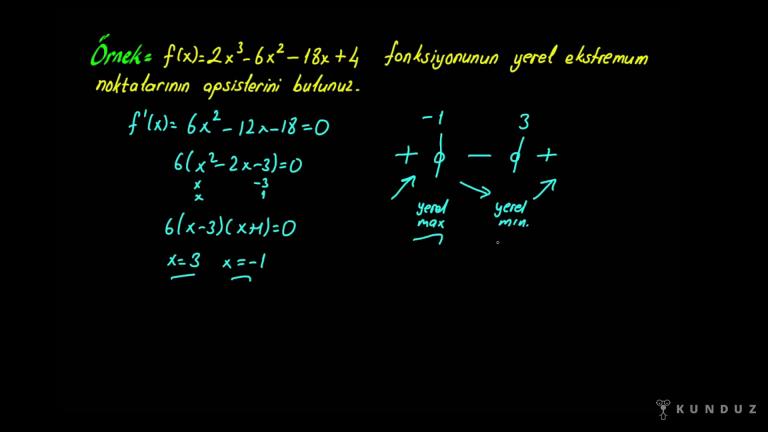 Örnek= f(x)=2x³-6x²-18x+4 fonksiyonunun yerel ekstremum
noktalarının apsislerini bulunuz.
f'(x)= 6x²-12x-18=0
6(x²-2x-3)=0
x -3
x 1
6(x-3)(x+1)=0
x=3 x=-1
-1 3
+ - +
yerel yerel
max min.
KUNDUZ